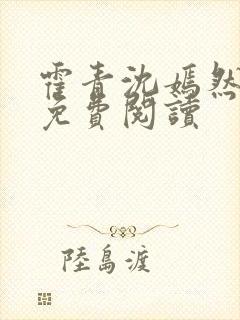 霍青沈嫣然
免費閱讀
陸島渡